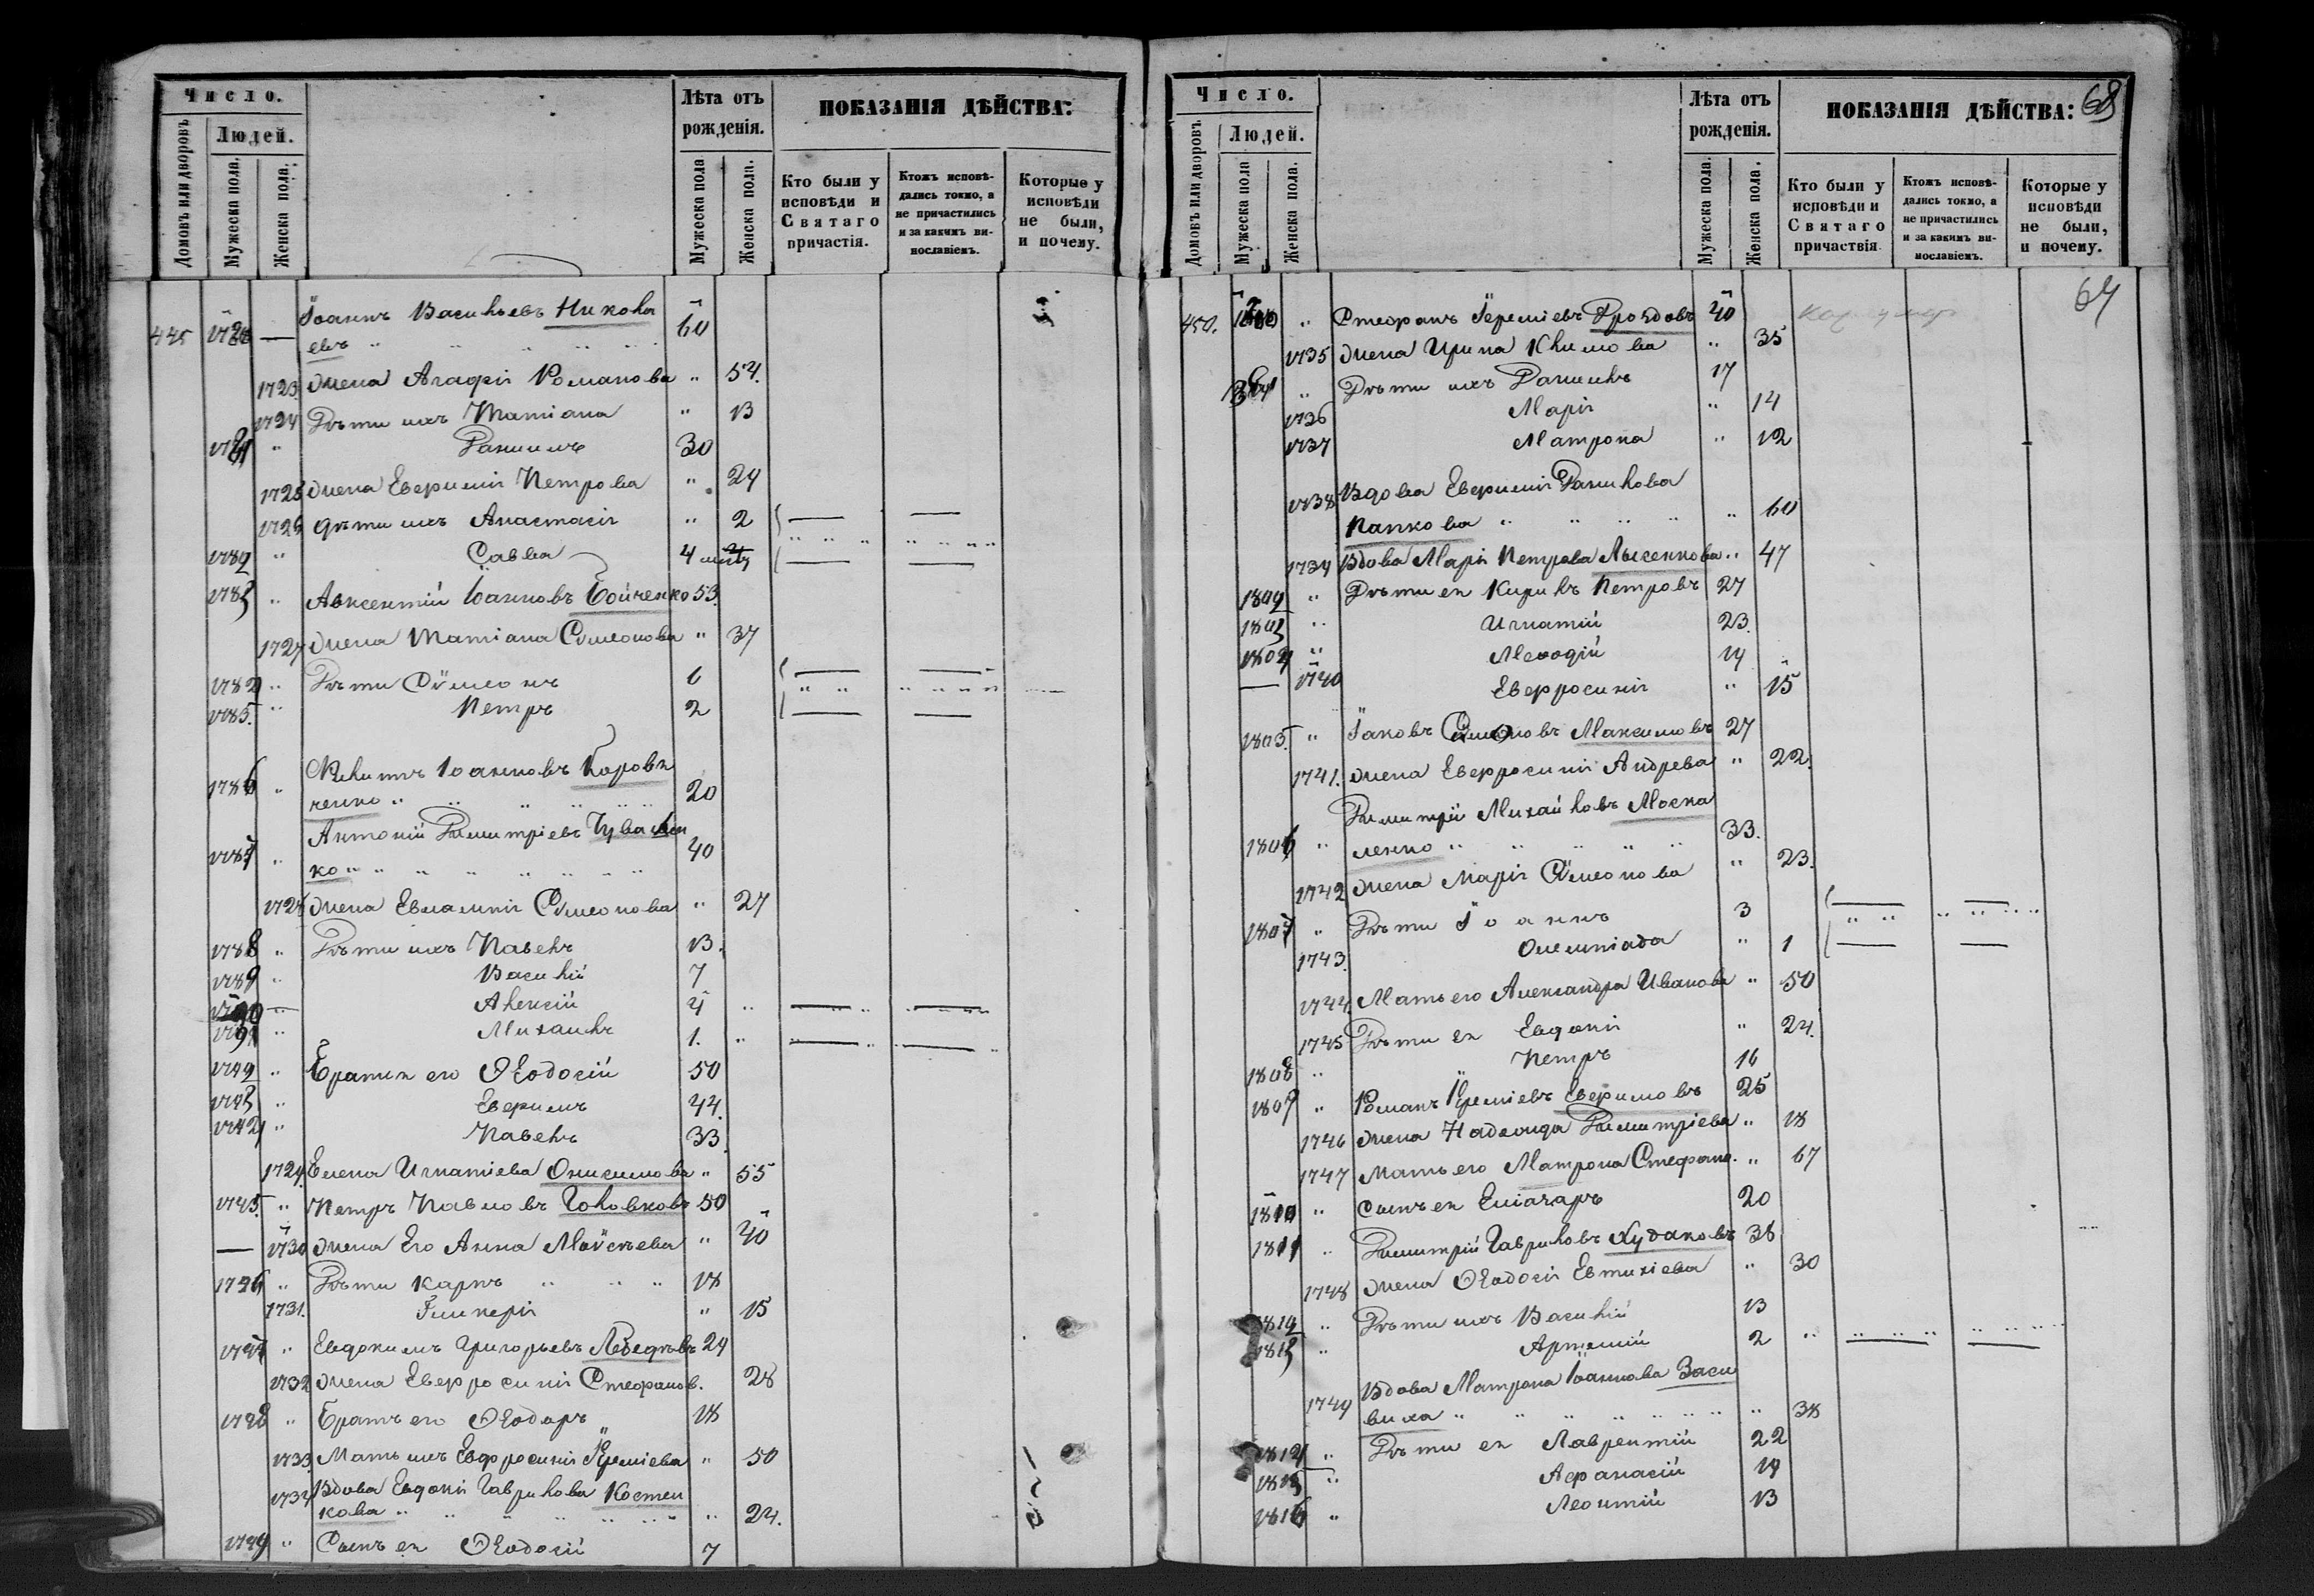 Число.
Людей.
Домовъ или дворовъ.
Мужеска пола.
Женска пола.
Лѣта отъ рожденія.
Мужеска пола
Женска пола.
ПОКАЗАНІЯ ДѢЙСТВА:
Кто были у исповѣди и Святаго причастія.
Ктожъ исповѣ-дались токмо, а не причастились и за какимъ ви-нословіемъ.
Которые у исповѣди не были, и почему.
445 1780 — Іоаннъ Васильевъ Никола 60
евъ
1723 жена Агафія Романова " 54.
1724 Дѣти ихъ Татіана " 13
1781 " Даніилъ 30
1725 жена Евфимія Петрова " 24
1726 дѣти ихъ Анастасія " 2
1782 " Савва 4
1783 " Авксентій Іоанновъ Бойченко 53.
1727 жена Татіана Сѵмеонова " 37
1784 " Дѣти Сѵмеонъ 6
1785. " Петръ 2
1786 " Никита Іоанновъ Коровя
ченко " 20
1787 " Антоній Димитріевъ
ко " 40
1728 жена Евлампія Сѵмеонова " 27
1788 " Дѣти ихъ Павелъ 13.
1789 " Василій 7
1790 Алексій 4
1791 " Михаилъ 1.
1792 " Братья его Ѳеодосій 50
1793 " Евфимъ 44.
1794 " Павелъ 33
1729. Елена Игнатіева Онисимова " 55
1795. " Петръ Павловъ Головковъ 50
— 1730 жена Его Анна Моѵсѣева " 40
1796 " Дѣти Карпъ 18
1731. Гликерія " 15
1797 " Евдокимъ Григорьевъ Лебедевъ 24
1732 жена Евфросинія Стефанов. 28
1798 " Братъ его Ѳеодоръ 18
1733. Мать ихъ Евфросинія Іереміева " 50
1734 Вдова Евдокія Гаврилова Костен
кова " 24.
1799 " Сынъ ея Ѳеодосій 7
Число.
Людей.
Домовъ или дворовъ.
Мужеска пола
Женска пола.
Лѣта отъ рожденія.
Мужеска пола.
Женска пола.
ПОКАЗАНІЯ ДѢЙСТВА:
68
Кто были у исповѣди и Святаго причаствія
Ктожъ исповѣ-дались токмо, а не причастились и за какимъ ви-нославіемъ.
Которые у исповѣди не были, и почему.
64
450. 1800 " Стефанъ Іереміевъ Дроздовъ 40
1735 жена Ирина Климова " 35
" Дѣти ихъ Даніилъ 17
1736 Марія " 14
1737 Матрона " 12
1738 Вдова Евфимія Данилова
Папкова " 60
1739 Вдова Марія Петрова Лысенкова " 47
1802 " Дѣти ея Кирилъ Петровъ 27
1803 " Игнатій 23.
1804 " Меѳодій 19
— 1740 Евфросинія " 15
1805. " Іаковъ Симоновъ Максимовъ 27
1741. жена Евфросинія Андрева " 22.
Димитрій Михайловъ Моска
1806 " ленко " 33.
1742 жена Марія Сѵмеонова " 23.
1807 " Дѣти Іоаннъ 3
1743. Олимпіада " 1
1744. Мать его Александра Иванова " 50
1745 Дѣти ея Евдокія " 24.
1808 " Петръ 16
1809 " Романъ Іереміевъ Евфимовъ 25
1746 жена Надежда Димитріева " 18
1747 Мать его Матрона Стефано. " 67
1810 " сынъ ея Еліазаръ 20
1811 " Димитрій Гавриловъ Худаковъ 38
1748 жена Ѳеодосія Евтихіева " 30
1812 " Дѣти ихъ Василій 13
1813 " Артемій 2
1749 Вдова Матрона Іоаннова Васи
виха " 38
1814 " Дѣти ея Лаврентій 22
1815 " Афанасій 19
1816 " Леонтій 13